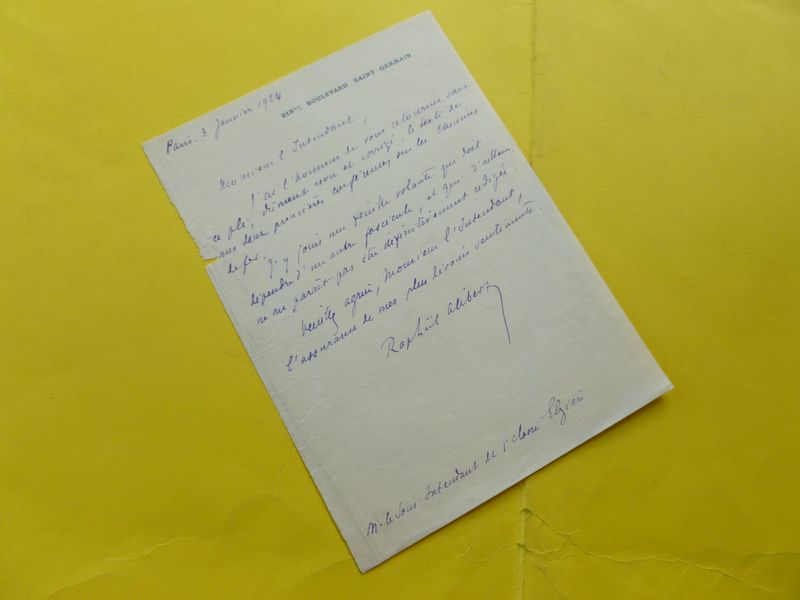 218bis BOULEVARD SAINT GERMAIN
Paris. 3 Janvier 1924
Monsieur l'Intendant,
J'ai l'honneur de vous retourner sous
ce pli, dûment revu et corrigé le texte de
mes deux premières conférences sur les Chemins
de fer.
J'y joins une feuille volante qui doit
dépendre d'un autre fascicule, et qui, d'ailleurs,
ne me paraît pas être définitivement rédigée.
Veuillez agréer, Monsieur l'Intendant,
l'assurance de mes plus dévoués sentiments.
Raphaël Alibert
M. le Sous-Intendant de 1e Classe